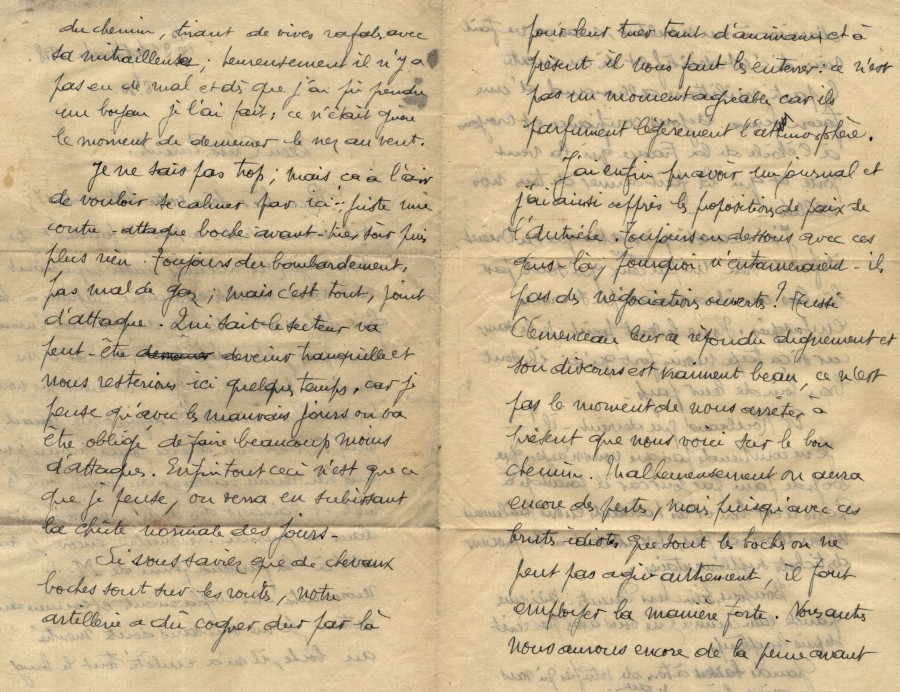 du chemin, tirant de vives rafales avec
sa mitrailleuse; heureusement il n'y a
pas eu de mal et dès que j'ai pu prendre
un boyau je l'ai fait; ce n'était guère
le moment de demeurer le nez au vent.
Je ne sais pas trop; mais ça a l'air
de vouloir se calmer par ici: juste une
contre-attaque boche avant-hier soir puis
plus rien. Toujours du bombardement,
pas mal de gaz; mais c'est tout, point
d'attaque. Qui sait le secteur va
peut-être devenir tranquille et
nous resterions ici quelque temps, car je
pense qu'avec les mauvais jours on va
être obligé de faire beaucoup moins
d'attaques. Enfin tout ceci n'est que ce
que je pense, on verra en subissant
la chûte normale des jours.
Si vous saviez que de chevaux
boches sont sur les routes, notre
artillerie a dû cogner dur par là
pour leur tuer tant d'animaux et à
présent il nous faut les enterrer: ce n'est
pas un moment agréable car ils
parfument légèrement l'atmosphère.
J'ai enfin pu avoir un journal et
j'ai aussi appris les propositions de paix de
l'Autriche. Toujours en dessous avec ces
gens-là, pourquoi n'entameraient-ils
pas des négociations ouvertes? Aussi
Clemenceau leur a répondu dignement et
son discours est vraiment beau, ce n'est
pas le moment de nous arrêter à
présent que nous voici sur le bon
chemin. Malheureusement on aura
encore des pertes, mais puisqu'avec ces
bruts idiots que sont les boches on ne
peut pas agir autrement, il faut
employer la manière forte. Nous autres
nous aurons encore de la peine avant